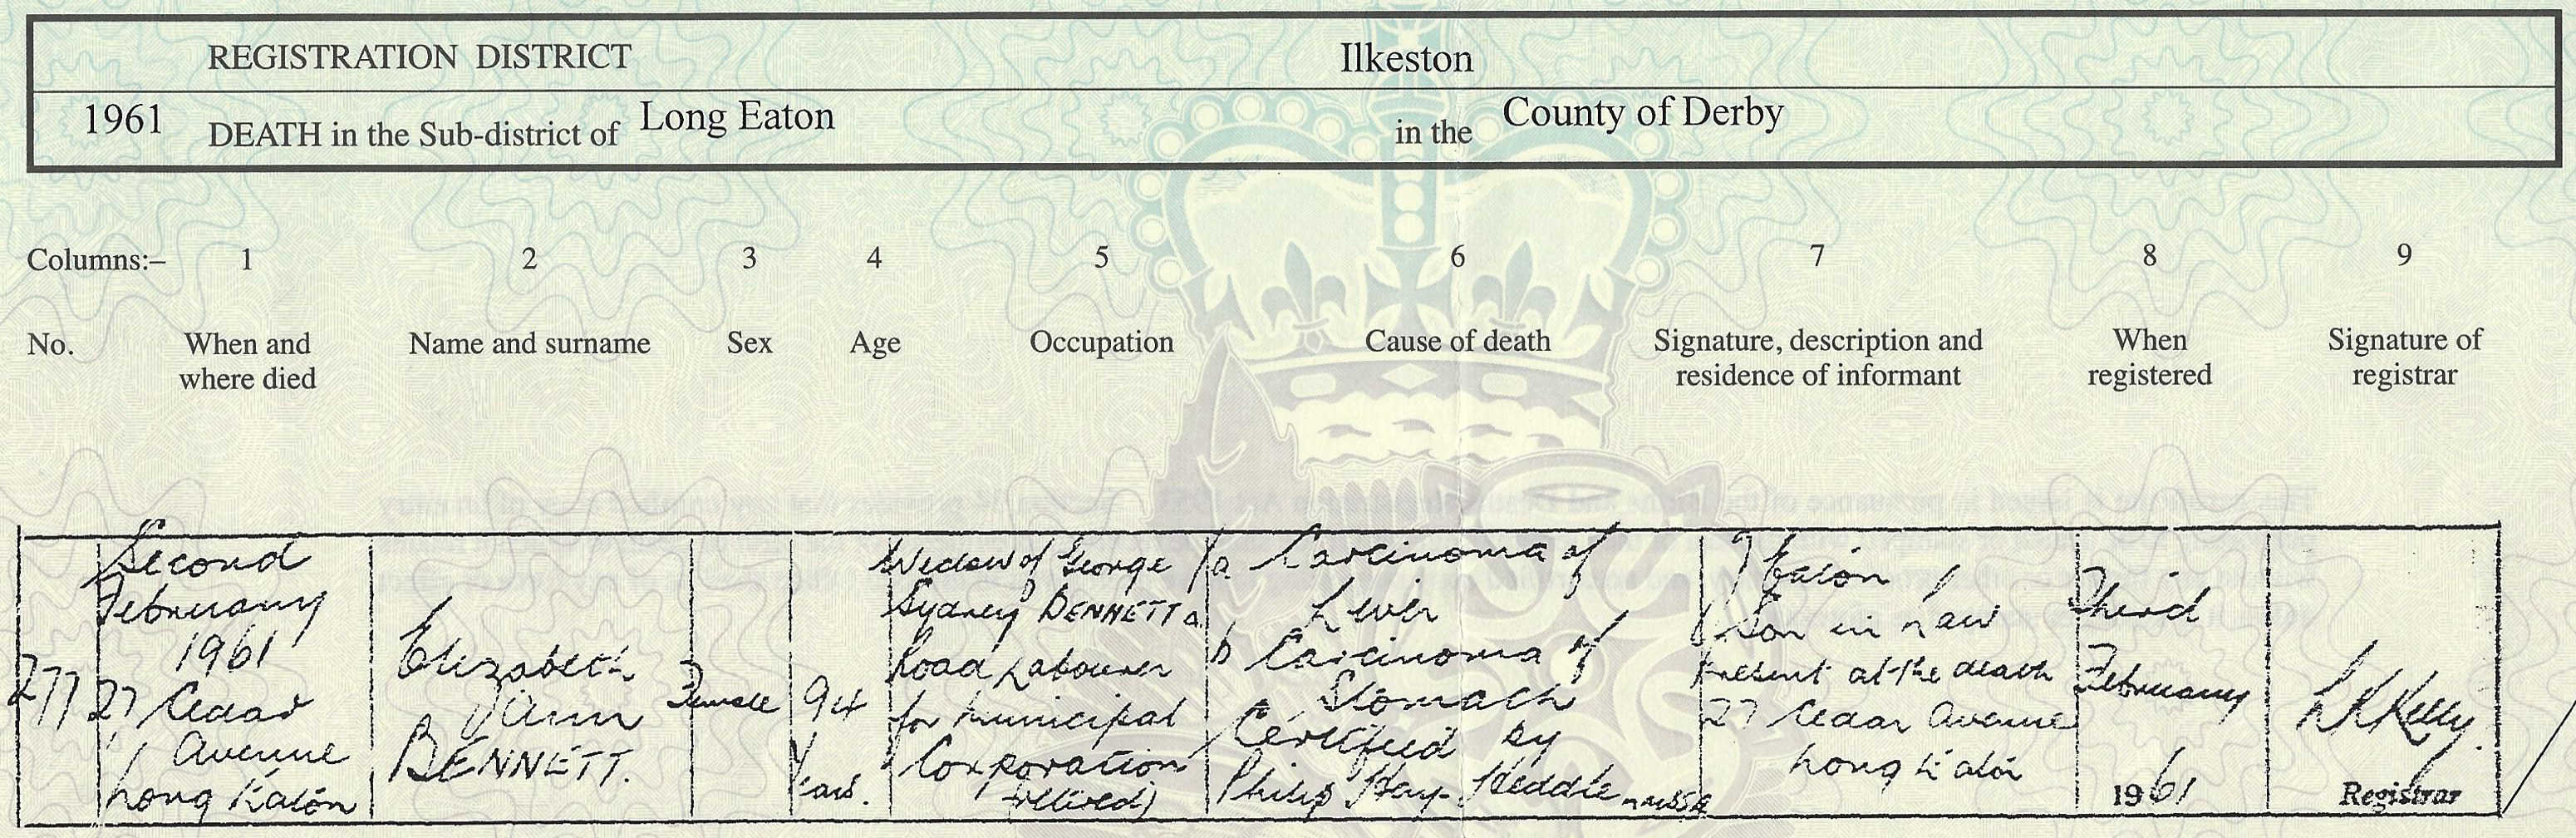 REGISTRATION DISTRICT Ilkeston
1961 DEATH in the Sub-district of Long Eaton in the County of Derby
Columns:– 1 2 3 4 5 6 7 8 9
No. When and where died Name and surname Sex Age Occupation Cause of death Signature, description and residence of informant When registered Signature of registrar
277
Second
February
1961
27 Cedar
Avenue
Long Eaton
Elizabeth
Ann
BENNETT.
Female
94
Years.
Widow of George
Sydney BENNETT a
Road Labourer
for Municipal
Corporation
(retired)
1a Carcinoma of
Liver
b Carcinoma of
Stomach
Certified by
Philip Hay-Heddle
Eaton
Son in Law
Present at the death
27 Cedar Avenue
Long Eaton
Third
February
1961
Kelly.
Registrar